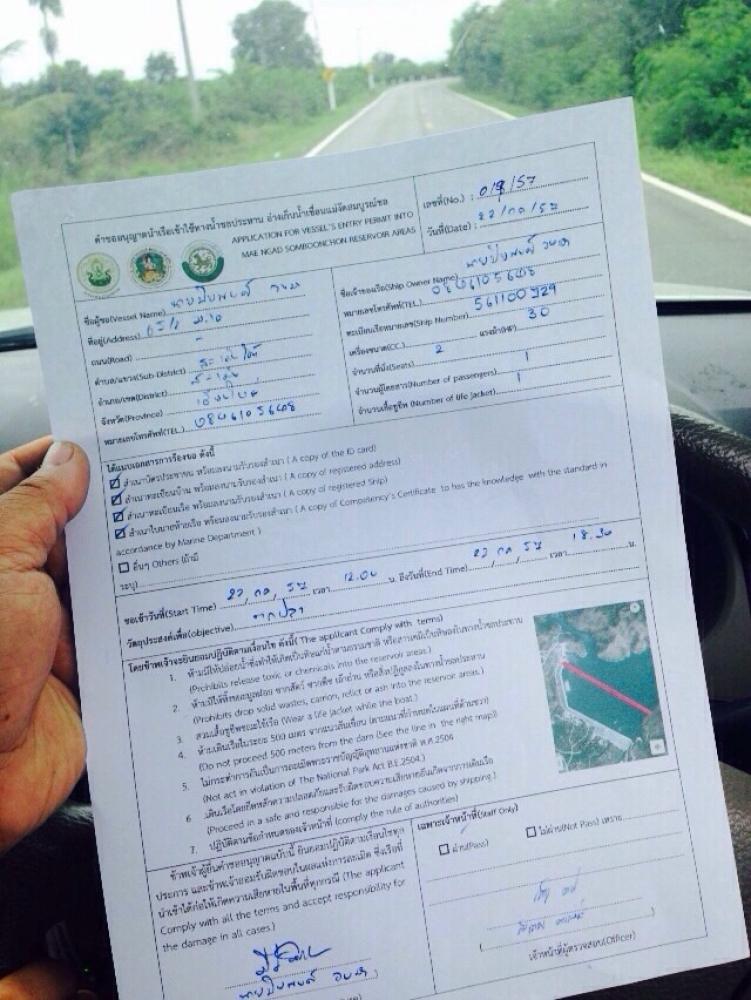 คำขออนุญาตนำเรือเข้าใช้ทางน้ำชลประทาน อ่างเก็บน้ำเขื่อนแม่งัดสมบูรณ์ชล
APPLICATION FOR VESSEL'S ENTRY PERMIT INTO
MAE NGAD SOMBOONCHON RESERVOIR AREAS
เลขที่(No.) :
วันที่(Date) : 22 / กค / 57
ชื่อผู้ขอ(Vessel Name)
ที่อยู่(Address)
ถนน(Road) -
ตำบล/แขวง(Sub-District)
อำเภอ/เขต(District)
จังหวัด(Province) เชียงใหม่
หมายเลขโทรศัพท์(TEL)
ชื่อเจ้าของเรือ(Ship Owner Name)
หมายเลขโทรศัพท์(TEL)
ทะเบียนเรือหมายเลข(Ship Number) 561100929
เครื่องขนาด(CC.) แรงม้า(HP) 30
จำนวนที่นั่ง(Seats) 2
จำนวนผู้โดยสาร(Number of passengers) 1
จำนวนเสื้อชูชีพ (Number of life jacket) 1
ได้แนบเอกสารการร้องขอ ดังนี้
สำเนาบัตรประชาชน พร้อมลงนามรับรองสำเนา ( A copy of the ID card)
สำเนาทะเบียนบ้าน พร้อมลงนามรับรองสำเนา ( A copy of registered address)
สำเนาทะเบียนเรือ พร้อมลงนามรับรองสำเนา ( A copy of registered Ship)
สำเนาใบนายท้ายเรือ พร้อมลงนามรับรองสำเนา ( A copy of Competency's Certificate to has the knowledge with the standard in
accordance by Marine Department )
อื่นๆ Others (ถ้ามี
ระบุ)
ขอเข้าวันที่(Start Time) 22 / กค / 57 เวลา 12.00 น. ถึงวันที่(End Time) 22 กค 57 เวลา 18.30 น.
วัตถุประสงค์เพื่อ(objective) ตกปลา
โดยข้าพเจ้าจะยินยอมปฏิบัติตามเงื่อนไข ดังนี้( The applicant Comply with terms)
1. ห้ามมิให้ปล่อยน้ำซึ่งทำให้เกิดเป็นพิษแก่น้ำตามธรรมชาติ หรือสารเคมีเป็นพิษลงในทางน้ำชลประทาน
(Prohibits release toxic or chemicals into the reservoir areas.)
2. ห้ามมิให้ทิ้งขยะมูลฝอย ซากสัตว์ ซากพืช เถ้าถ่าน หรือสิ่งปฏิกูลลงในทางน้ำชลประทาน
(Prohibits drop solid wastes, carrion, relict or ash into the reservoir areas.)
3. สวมเสื้อชูชีพขณะใช้เรือ (Wear a life jacket while the boat.)
4. ห้ามเดินเรือในระยะ 500 เมตร จากแนวสันเขื่อน (ตามแนวที่กำหนดในแผนที่ด้านขวา)
(Do not proceed 500 meters from the dam (See the line in the right map))
5. ไม่กระทำการอันเป็นการละเมิดพระราชบัญญัติอุทยานแห่งชาติ พ.ศ.2504
(Not act in violation of The National Park Act B.E.2504.)
6. เดินเรือโดยยึดหลักความปลอดภัยและรับผิดชอบความเสียหายอันเกิดจากการเดินเรือ
(Proceed in a safe and responsible for the damages caused by shipping.)
7. ปฏิบัติตามข้อกำหนดของเจ้าหน้าที่ (comply the rule of authorities)
ข้าพเจ้าผู้ยื่นคำขออนุญาตฉบับนี้ ยินยอมปฏิบัติตามเงื่อนไขทุก
ประการ และข้าพเจ้ายอมรับผิดชอบในผลแห่งการละเมิด ซึ่งเรือที่
นำเข้าได้ก่อให้เกิดความเสียหายในพื้นที่ทุกกรณี (The applicant
Comply with all the terms and accept responsibility for
the damage in all cases.)
เฉพาะเจ้าหน้าที่(Staff Only)
ผ่าน(Pass) ไม่ผ่าน(Not Pass) เพราะ
เจ้าหน้าที่ผู้ตรวจสอบ(Officer)